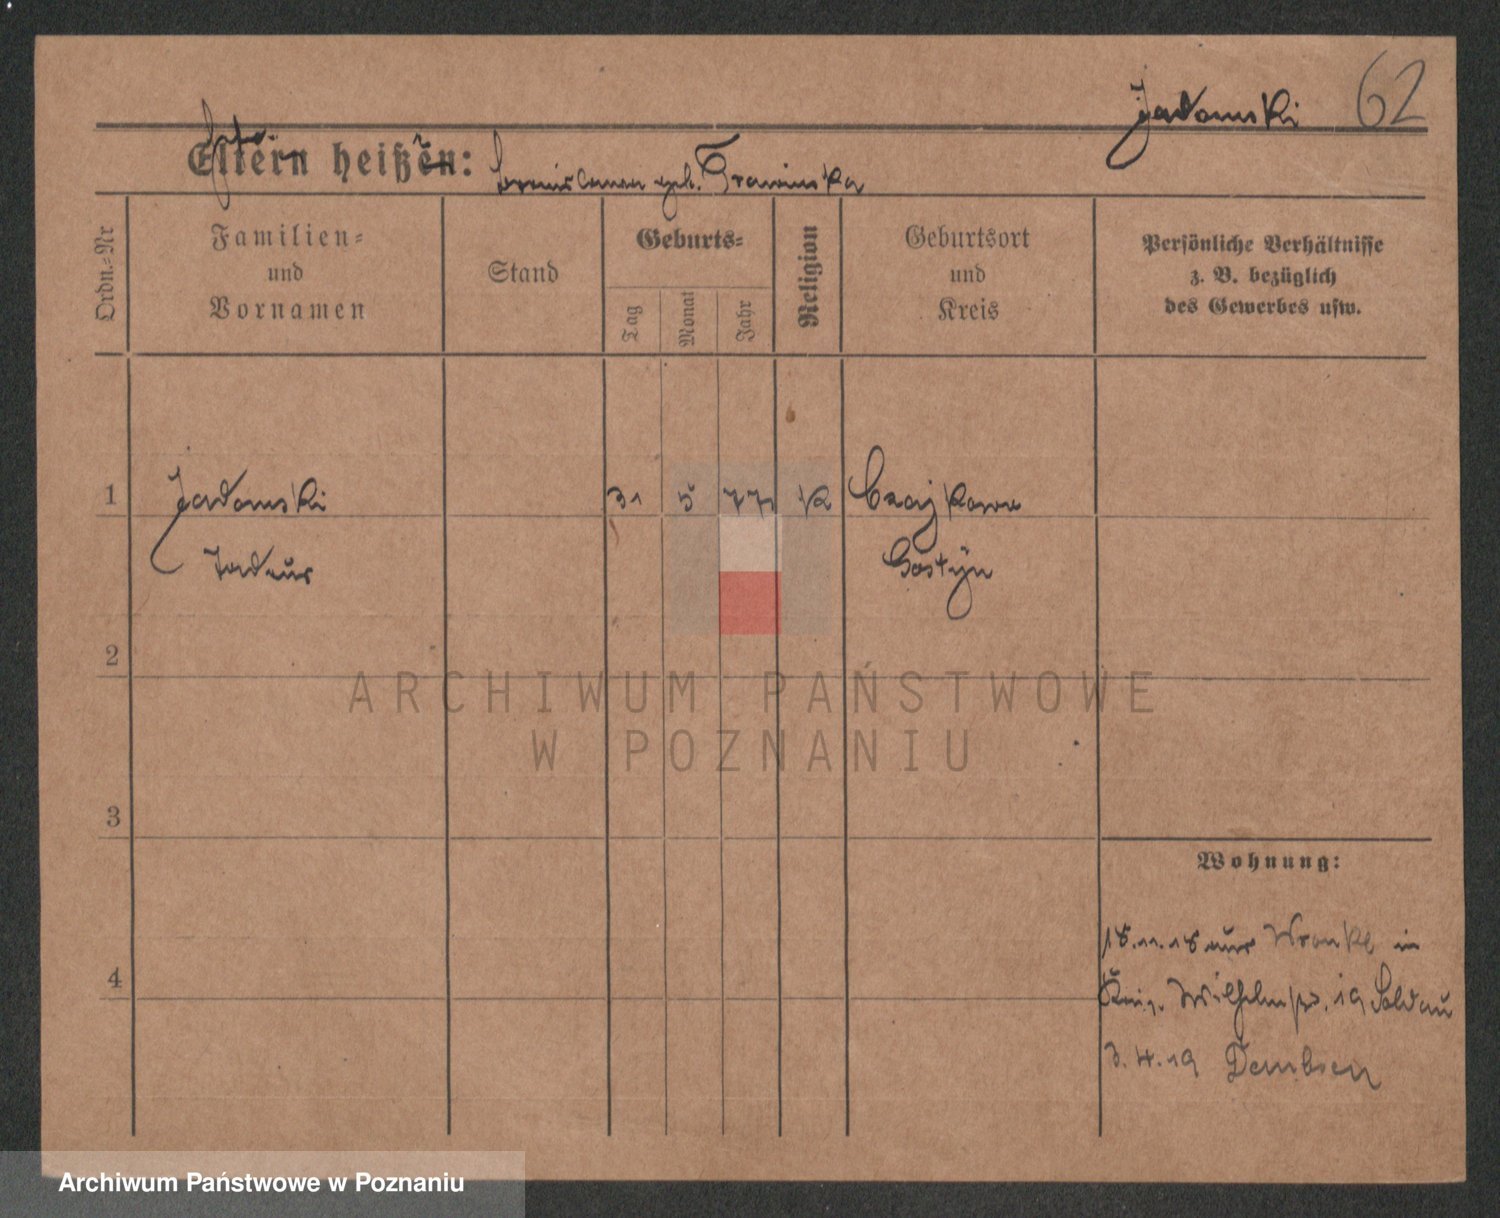 Jadomski 62
Eltern heißen: Bronislawa geb. Graninska
Ordn.-Nr
Familien-
und
Vornamen
Stand
Geburts-
Tag
Monat
Jahr
Religion
Geburtsort
und
Kreis
Persönliche Verhältnisse
z. B. bezüglich
des Gewerbes usw.
1 Jadomski 31 5 77 K Czajkowo
Tadeus Gostyn
2
ARCHIWUM PAŃSTWOWE
W POZNANIU
3
Wohnung:
18.11.18 aus Wronke in
19 Soldau
4
3.4.19 Dembsen
Archiwum Państwowe w Poznaniu